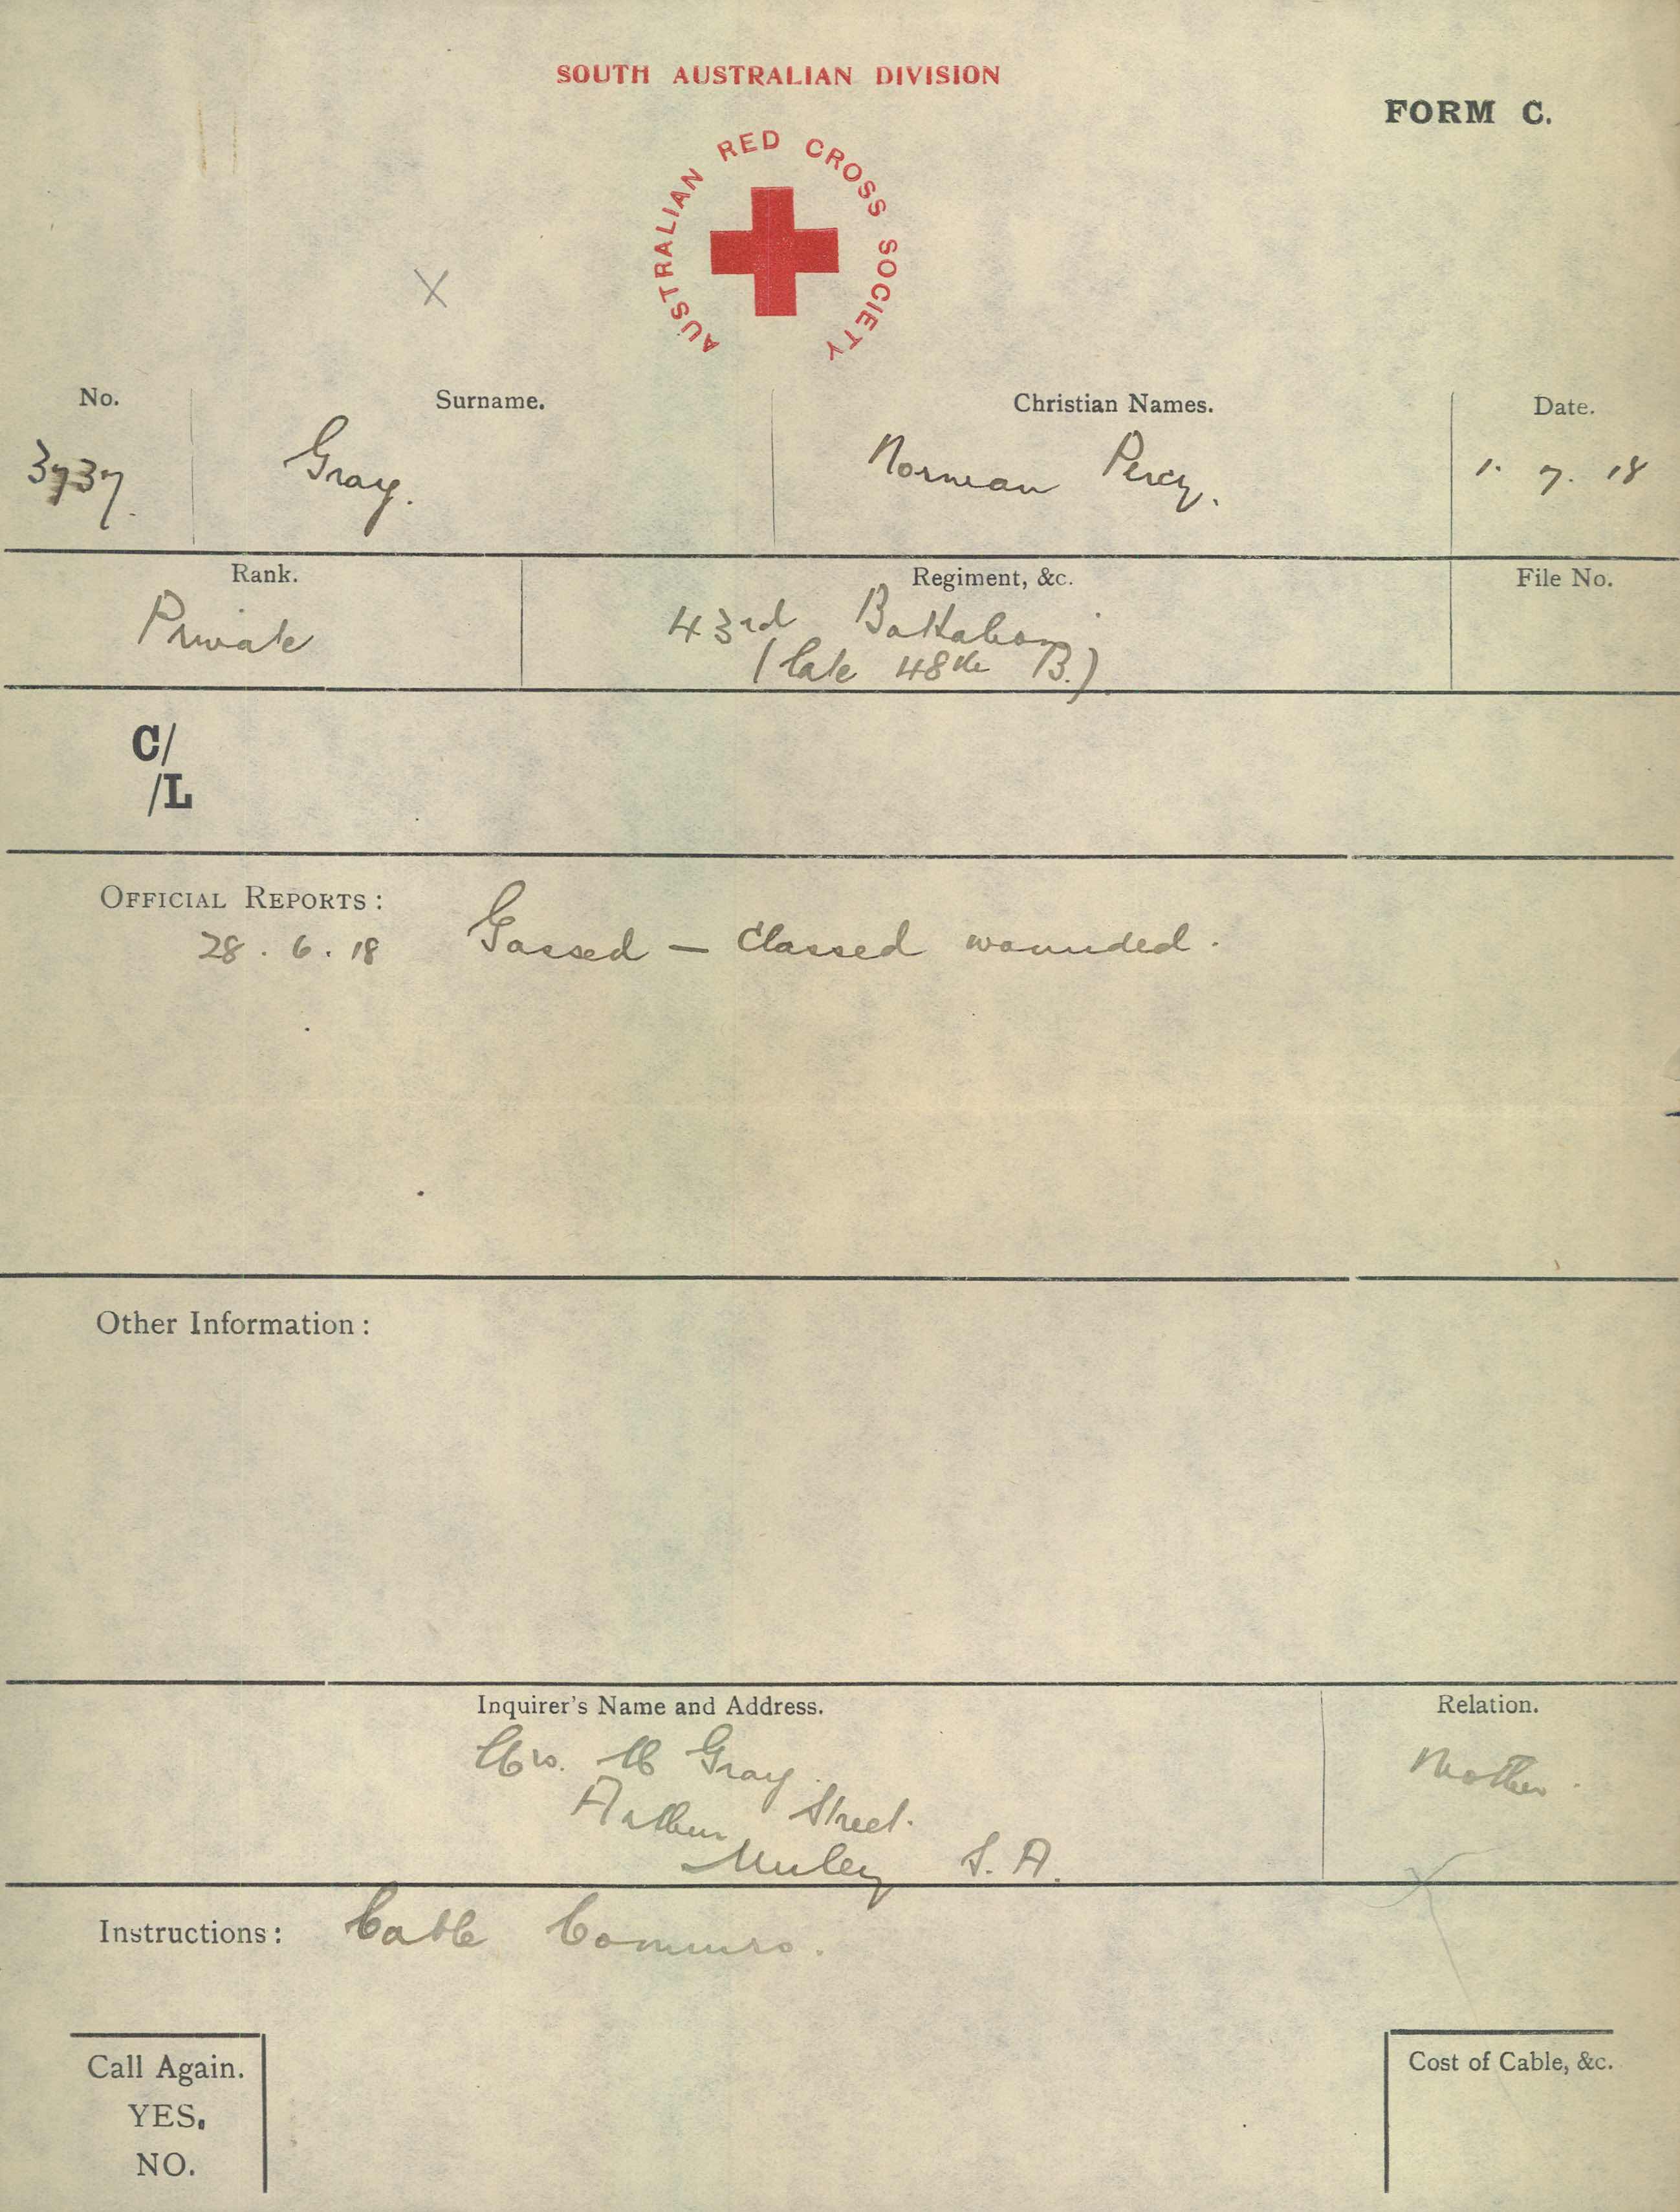 SOUTH AUSTRALIAN DIVISION
FORM C.
AUSTRALIAN RED CROSS SOCIETY
X
No. Surname. Christian Names. Date.
3737. Gray. Norman Percy. 1. 7. 18
Rank. Regiment, &c. File No.
Private 43rd Battalion
(late 48th B.)
C/
/L
OFFICIAL REPORTS:
28. 6. 18 Gassed — Classed wounded.
Other Information:
Inquirer's Name and Address. Relation.
Mrs. M Gray. Mother.
Arthur Street.
Unley S. A.
Instructions: Cable Commrs.
Call Again. Cost of Cable, &c.
YES.
NO.